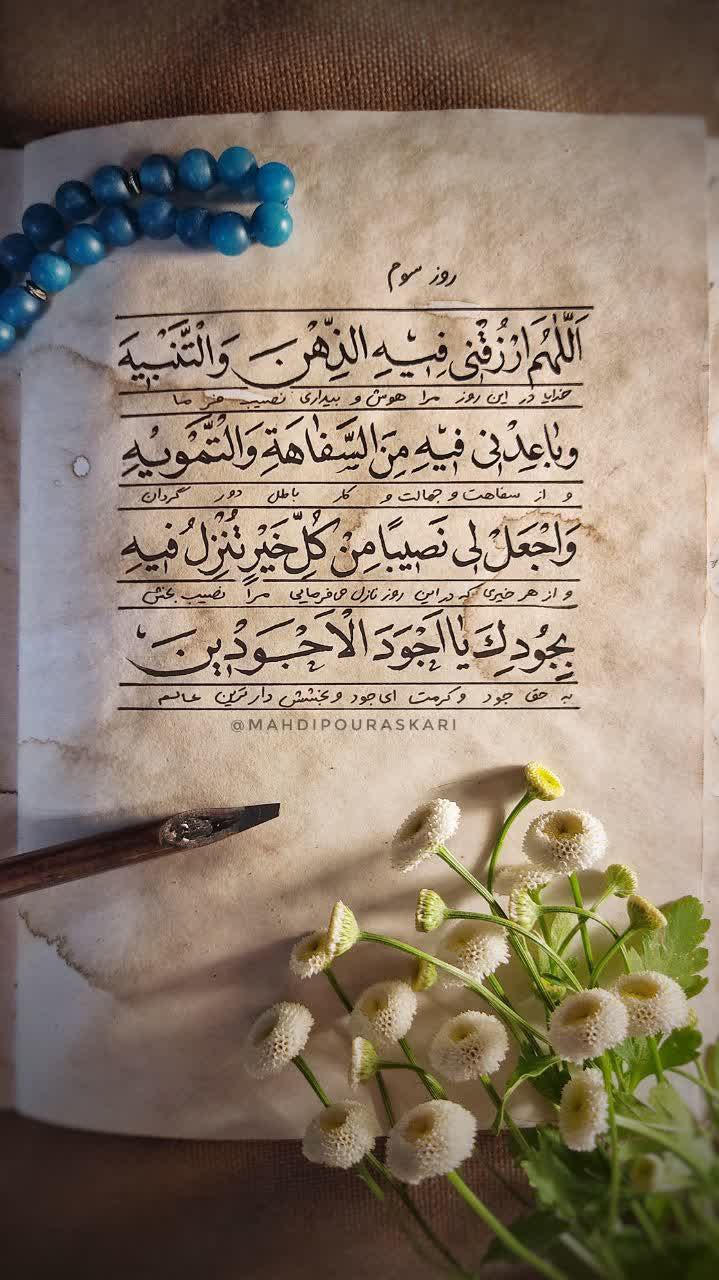 روز سوم
اَللّٰهُمَ ارْزُقْنی فیٖهِ الذِّهْنَ وَالْتَّنْبیٖهَ
خدایا در این روز مرا هوش و بیداری نصیب فرما
وَبٰاعِدْنی فیٖهِ مِنَ السَّفٰاهَةِ وَالْتَّمْویٖهِ
و از سفاهت و جهالت و کار باطل دور گردان
وَاجْعَلْ لی نَصیٖبًا مِنْ کُلِّ خَیْرٍ تُنْزِلُ فیٖهِ
و از هر خیری که در این روز نازل می فرمایی مرا نصیب بخش
بِجُودِكَ یٰا اَجْوَدَ الْاَجْوَدیٖنَ
به حق جود و کرمت ای جود و بخشش دار ترین عالم
@MAHDIPOURASKARI